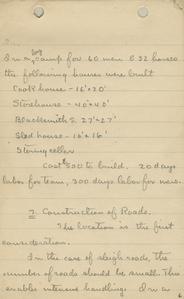 In a log camp for 60 men & 32 horses
the following houses were built
Cook house - 16' x 20'
Storehouse - 40' x 40'
Blacksmith S. 27' x 27'
Sled house - 16' x 16'
Storing cellar
Cost $500 to build. 20 days
labor for team, 300 days labor for men.
7. Construction of Roads.
The location is the first
consideration.
In the case of sleigh roads, the
number of roads should be small. This
enables intensive handling. In a